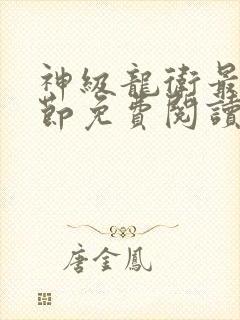 神級龍衛最
節免費閱讀
唐金鳳